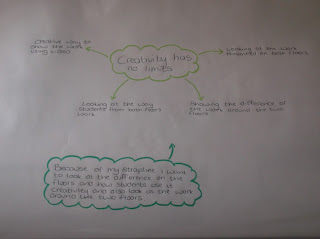 Creative way to
show the work
using video
Creativity has
no limits
Looking at the work
produced on both floors
Looking at the way
students from both floors
work
Showing the difference of
the work around the two
floors
Because of my strapline i want
to look at the difference on the
floors and how students use it
creativity and also look at the work
around the two floors